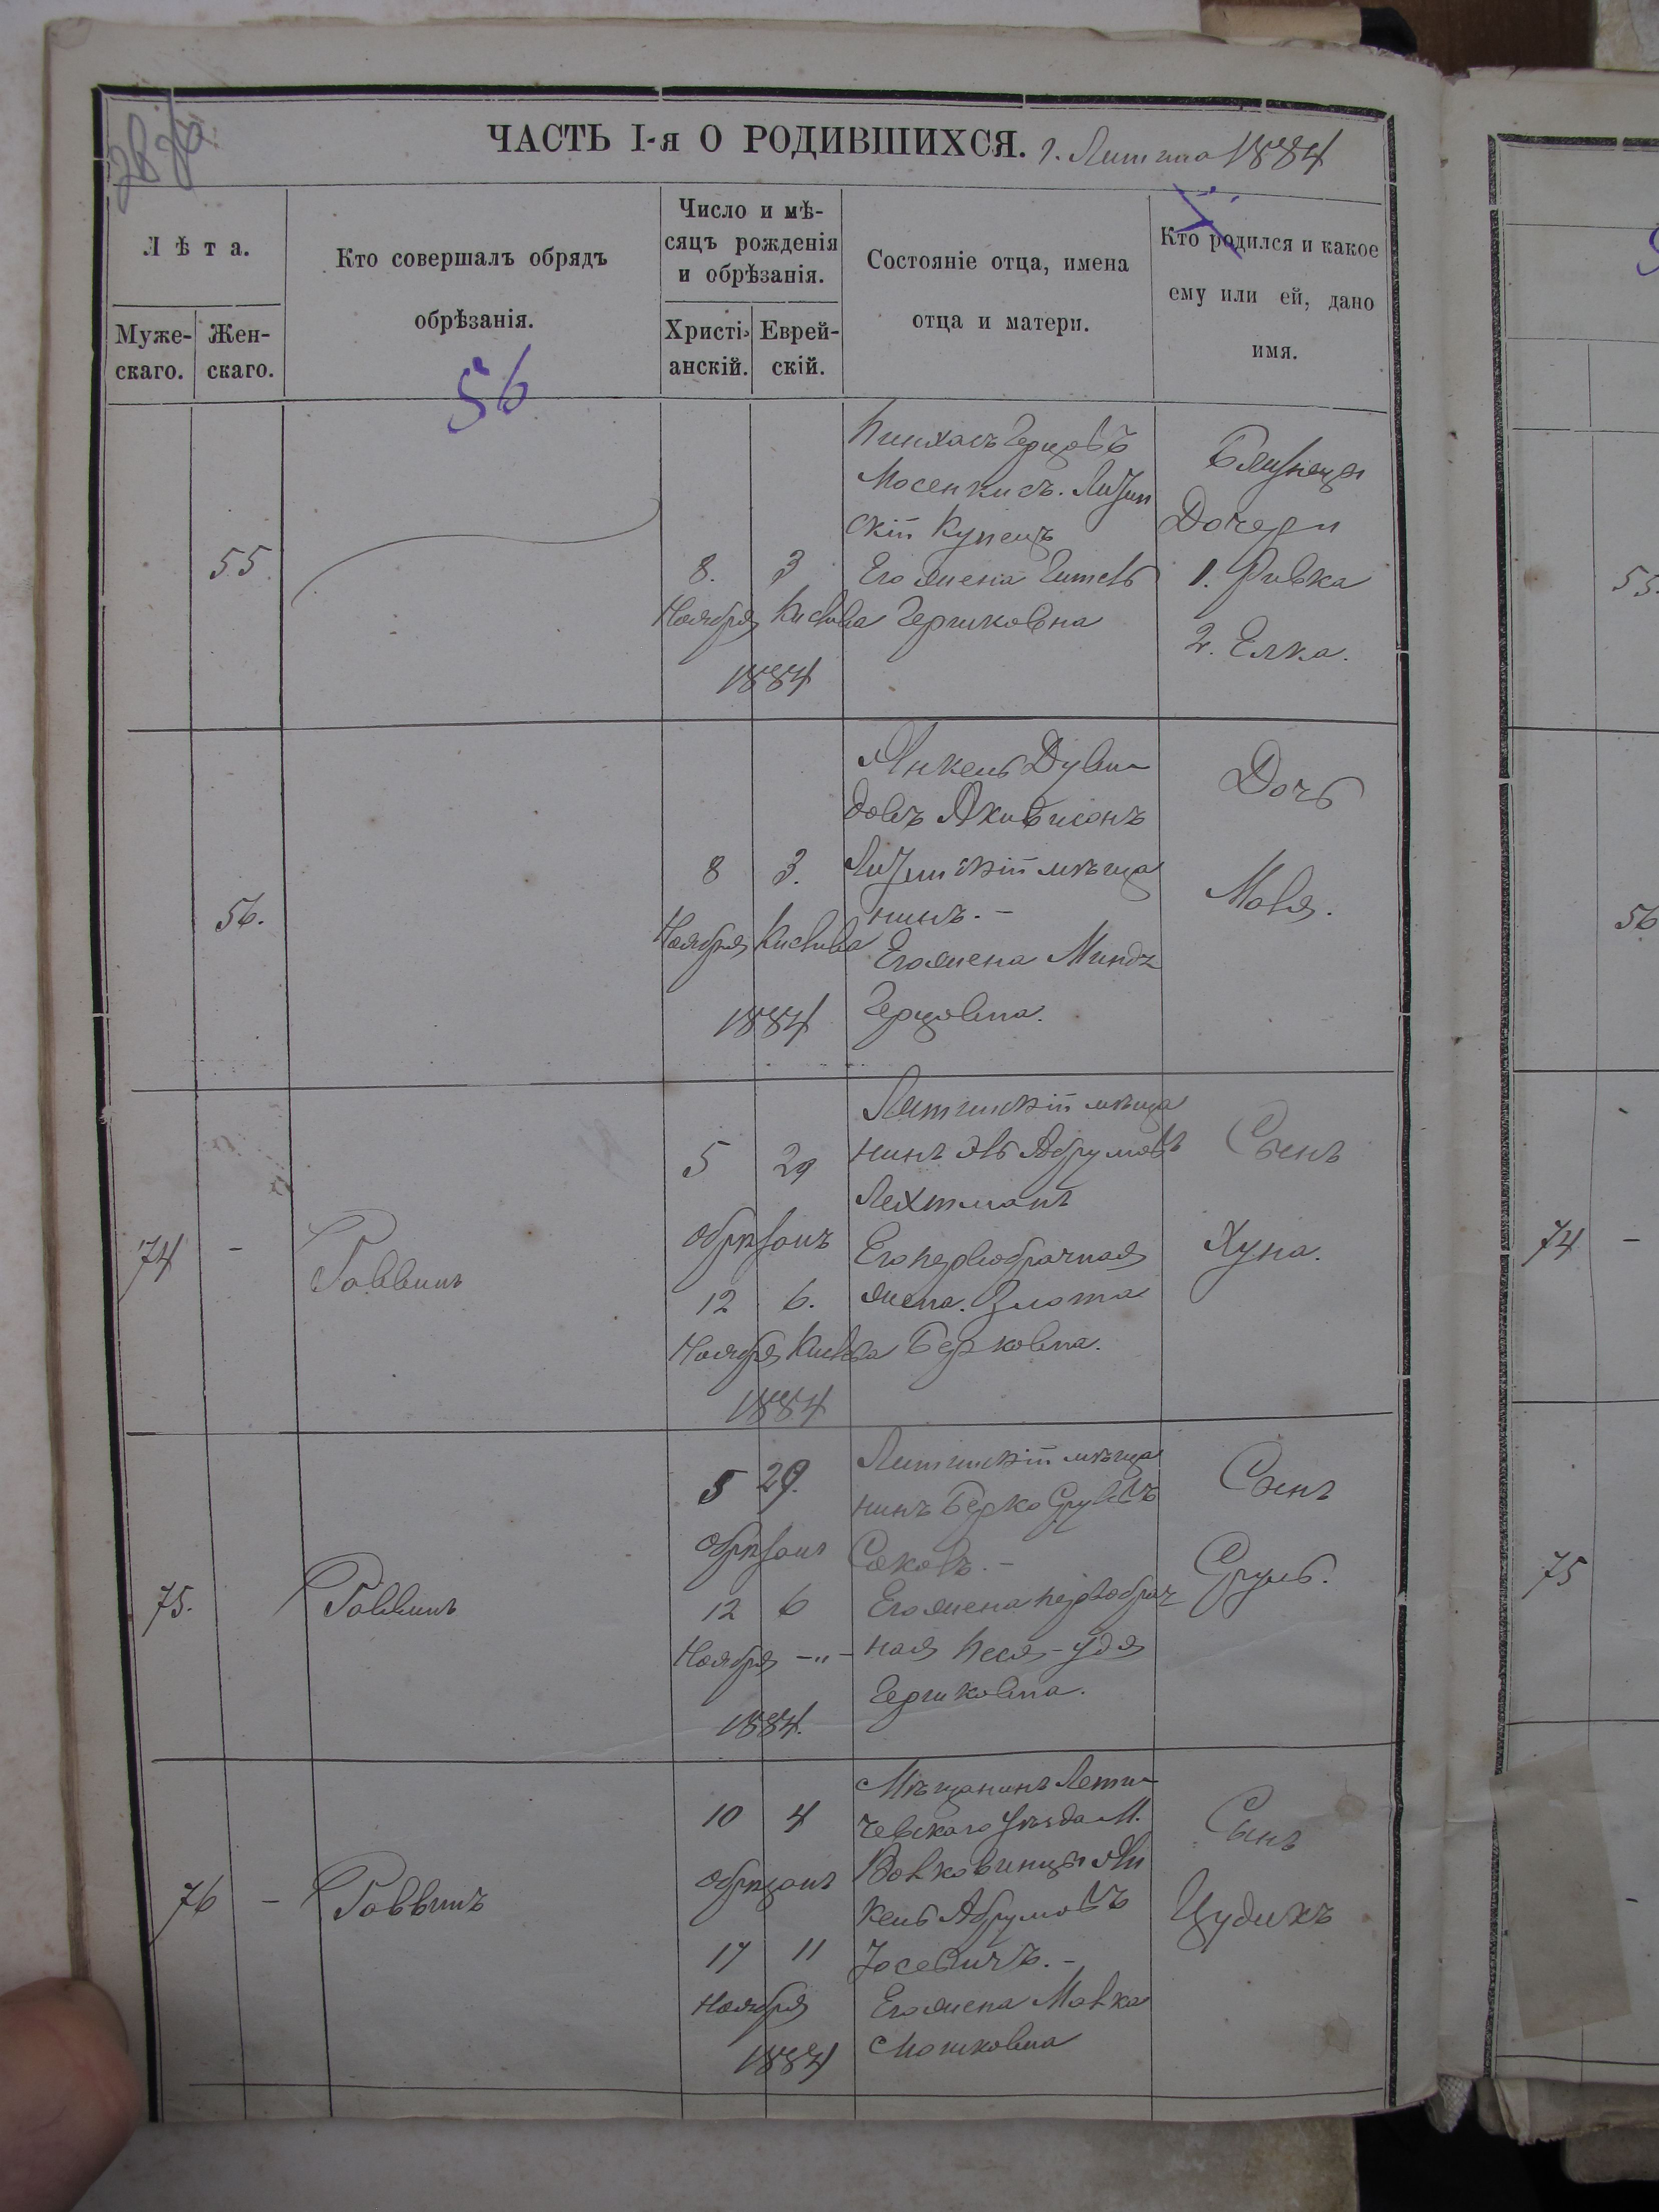 ЧАСТЬ I-я О РОДИВШИХСЯ. г. Литина 1884
Лѣта.
Муже-
скаго.
Жен-
скаго.
Кто совершалъ обрядъ
обрѣзанія.
56
Число и мѣ-
сяцъ рожденія
и обрѣзанія.
Христі-
анскій.
Еврей-
скій.
Состояніе отца, имена
отца и матери.
Кто родился и какое
ему или ей, дано
имя.
55
8. 3
Ноября Кислива
1884
Пинхасъ Герцовъ
Мосенкисъ. Литин
скій Купецъ
Его жена Гитель
Гершковна
Близнецы
Дочери
1. Ривка
2. Елка.
56.
8 3.
Ноября Кислива
1884
Янкель Дуви-
довъ Акивисонъ
Литинскій мѣща
нинъ. -
Его жена Миндя
Герцовна.
Дочь
Мовя.
74 -
Раввинъ
5 29
обрѣзанъ
12 6.
Ноября Кислива
1884
Литинскій мѣща
нинъ Эль Абрумовъ
Лехтманъ
Его первобрачная
жена. Злота
Берковна.
Сынъ
Хуна.
75.
Раввинъ
5 29.
обрѣзанъ
12 6
Ноября -"-
1884.
Литинскій мѣща
нинъ Берко Срулевъ
Соковъ. -
Его жена первобрач
ная Песя-Удя
Гершковна.
Сынъ
Сруль.
76 -
Раввинъ
10 4
обрѣзанъ
17 11
Ноября
1884
Мѣщанинъ Лети-
чевскаго Уѣзда М.
Волковинцы Ян
кель Абрумовъ
Іосевичъ. -
Его жена Малка
Мошковна
Сынъ
Цудикъ
55.
56
74 -
75
-